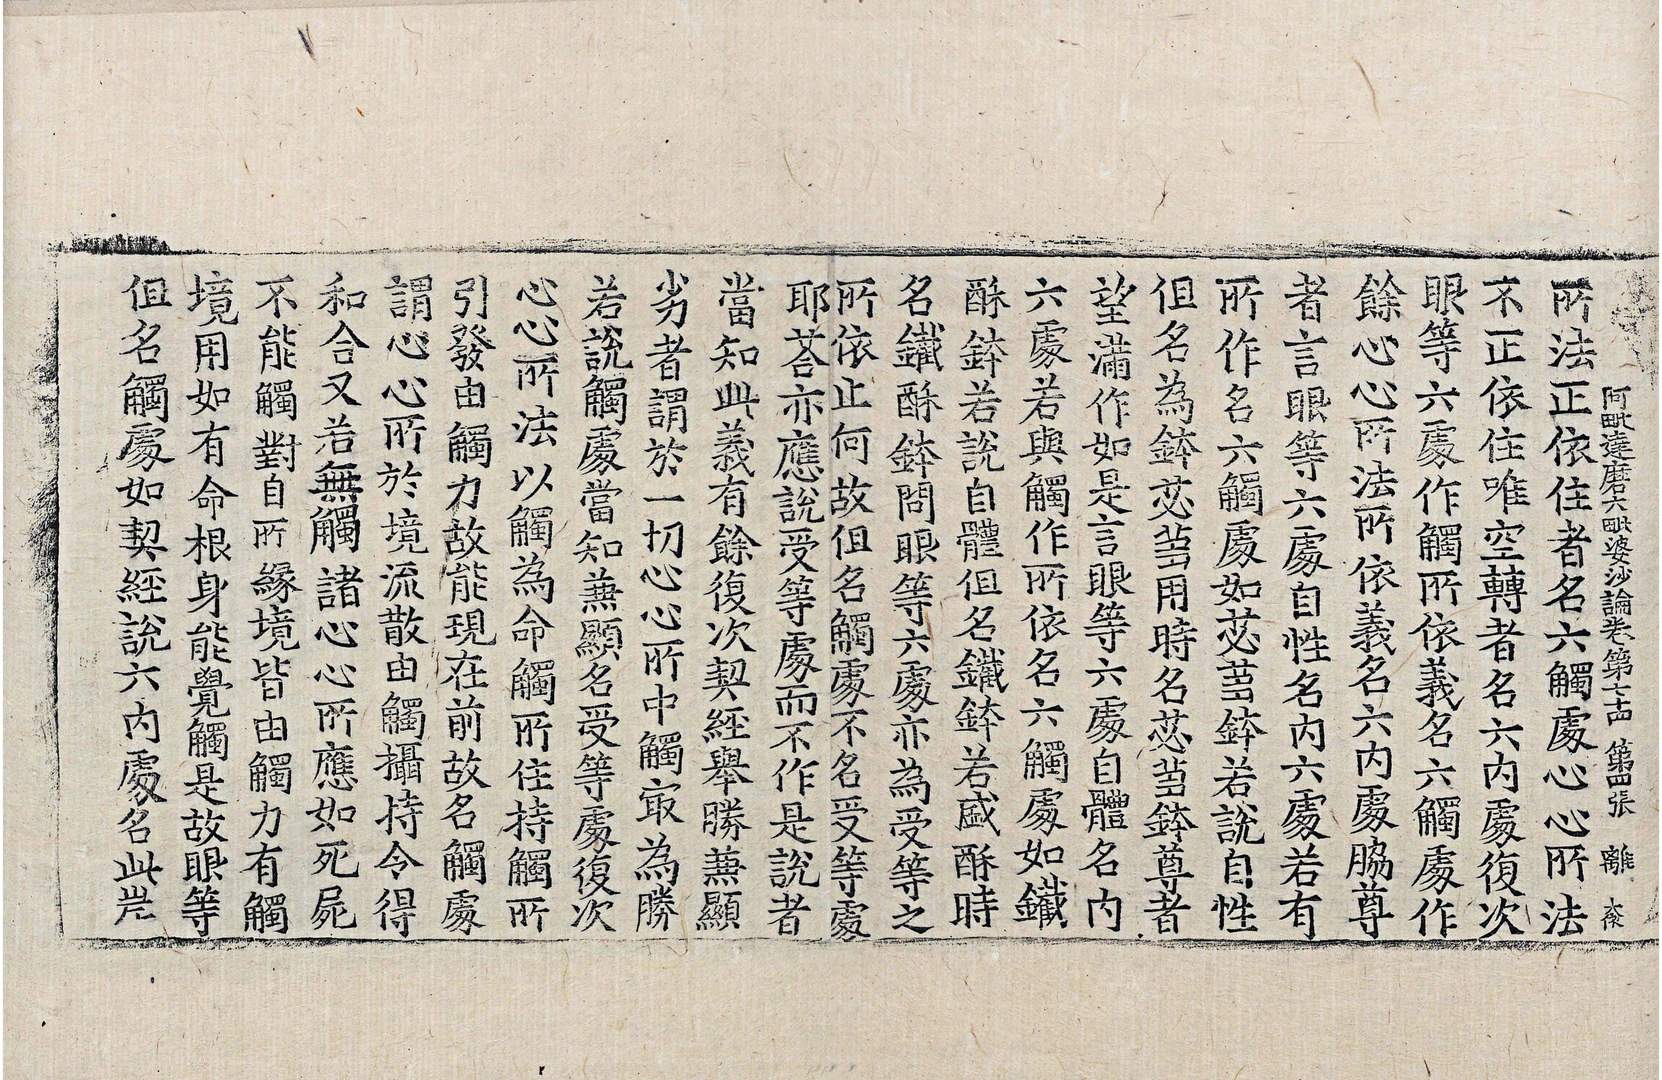 阿毗達磨大毗婆沙論卷第七十四 第四張 離
所法正依住者名六觸處心心所法
不正依住唯空轉者名六内處復次
眼等六處作觸所依義名六觸處作
餘心心所法所依義名六内處脇尊
者言眼等六處自性名内六處若有
所作名六觸處如苾芻鉢若說自性
但名為鉢苾芻用時名苾芻鉢尊者
望滿作如是言眼等六處自體名内
六處若與觸作所依名六觸處如鐵
酥鉢若說自體但名鐵鉢若盛酥時
名鐵酥鉢問眼等六處亦為受等之
所依止何故但名觸處不名受等處
耶荅亦應說受等處而不作是說者
當知此義有餘復次契經舉勝兼顯
劣者謂於一切心心所中觸㝡為勝
若說觸處當知兼顯名受等處復次
心心所法以觸為命觸所住持觸所
引發由觸力故能現在前故名觸處
謂心心所於境流散由觸攝持令得
和合又若無觸諸心心所應如死屍
不能觸對自所緣境皆由觸力有觸
境用如有命根身能覺觸是故眼等
但名觸處如契經說六内處名此岸